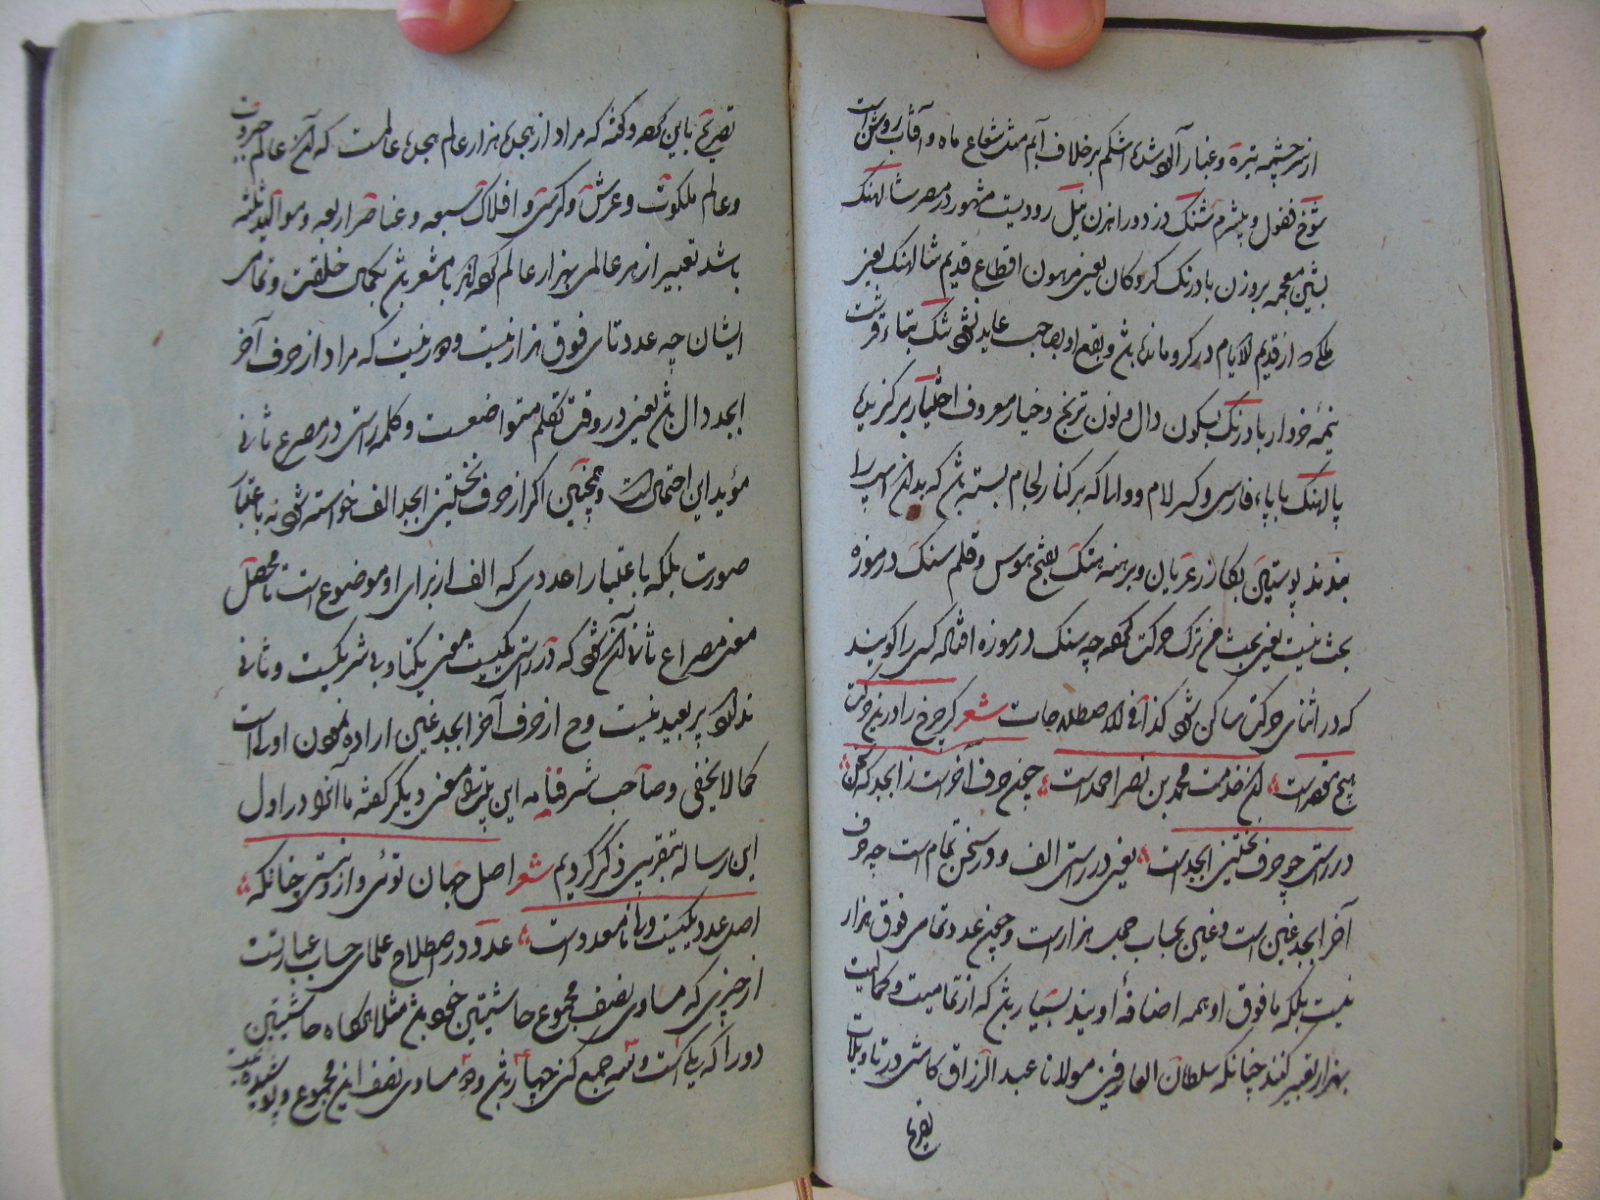 از سرچشمه تیره و غبار آلوده شده اشکم برخلاف آبم مثل شعاع ماه و آفتاب روشن است
شوخ فضول و بیشرم شنگ دزد و راهزن نیل رودیست مشهور در مصر شالهنک
بشین معجمه بر وزن بادرنک کروکان یعنی مرهون اقطاع قدیم شالهنک یعنی
ملکی که از قدیم الایام در کرو مانده باشد و نفع او بصاحب عاید نشود تنک بتاء قرشت
نیمه خردار بادرنک بسکون دال و نون ترنج و خیار معروف اختیار برگزیده
پالهنک با پاء فارسی و کسر لام دوالها که بر کنار لجام بسته باشد که بدان اسپ را
بندند پوستین بکازر عریان و برهنه هتنک بفتح هوس و قلم سنک در موزه
بحث نیست یعنی بحث من ترک حرکت کمه چه سنک در موزه افتاله کسی را کویند
که در اثنای حرکت ساکن شود کذا فی الاصطلاحات شعر کرچرخ را درین حرکت
هیچ مقصد است آن خدمت محمد بن نصر احمد است چون حرف آخرست ز ابجد که سخن
در راستی چو حرف نخستین ابجد است یعنی در راستی الف و در سخن تمام است چه حرف
آخر ابجد غین است و غین بحساب جمل هزار است و چون عدد تمامی فوق هزار
نیست بلکه مافوق او همه اضافهٔ اویند بسیار باشد که از تمامیت و کمالیت
بهزار تعبیر کنند چنانکه سلطان العارفین مولانا عبد الرزاق کاشی در تاویلات
تصریح باین کمه و کفته که مراد از هجده هزار عالم هجده عالمست که آن عالم جبروت
و عالم ملکوت و عرش و کرسی و افلاک سبعه و عناصر اربعه و موالید ثلثه
باشد تعبیر از هر عالمی بهزار عالم کمه اند تا مشعر باشد بکمال خلقت و تمامی
ایشان چه عدد تامی فوق هزار نیست و دور نیست که مراد از حرف آخر
ابجد دال باشد یعنی در وقت تکلم متواضعست و کلمه راستی در مصرع ثانی
مؤید این احتمال است و همچنین اکر از حرف نخستین ابجد الف خواسته شود نه باعتبار
صورت بلکه باعتبار عددی که الف از برای او موضوع است تا محصل
معنی مصراع ثانی آن شود که در راستی یکیست یعنی یکتا و بی شریکست و ثانی
ندارد پر بعید نیست و ح از حرف آخر ابجد غین اراده نمودن اولی است
کما لا یخفی و صاحب شرفنامه این بیت را معنی دیکر کفته ما آنرا در اول
این رساله بتقریبی ذکر کردیم شعر اصل جهان توئی و از توستی چنانکه
اصل عدد یکیست ولی نامعدود است عدد در اصطلاح علمای حساب عبارتست
از چیزی که مساوی نصف مجموع حاشیتین خود باشد مثلا هرکاه حاشیتین
دو را که یک است و سه جمع کنی چهار باشد و دو مساوی نصف این مجموع و پوشیده نیست